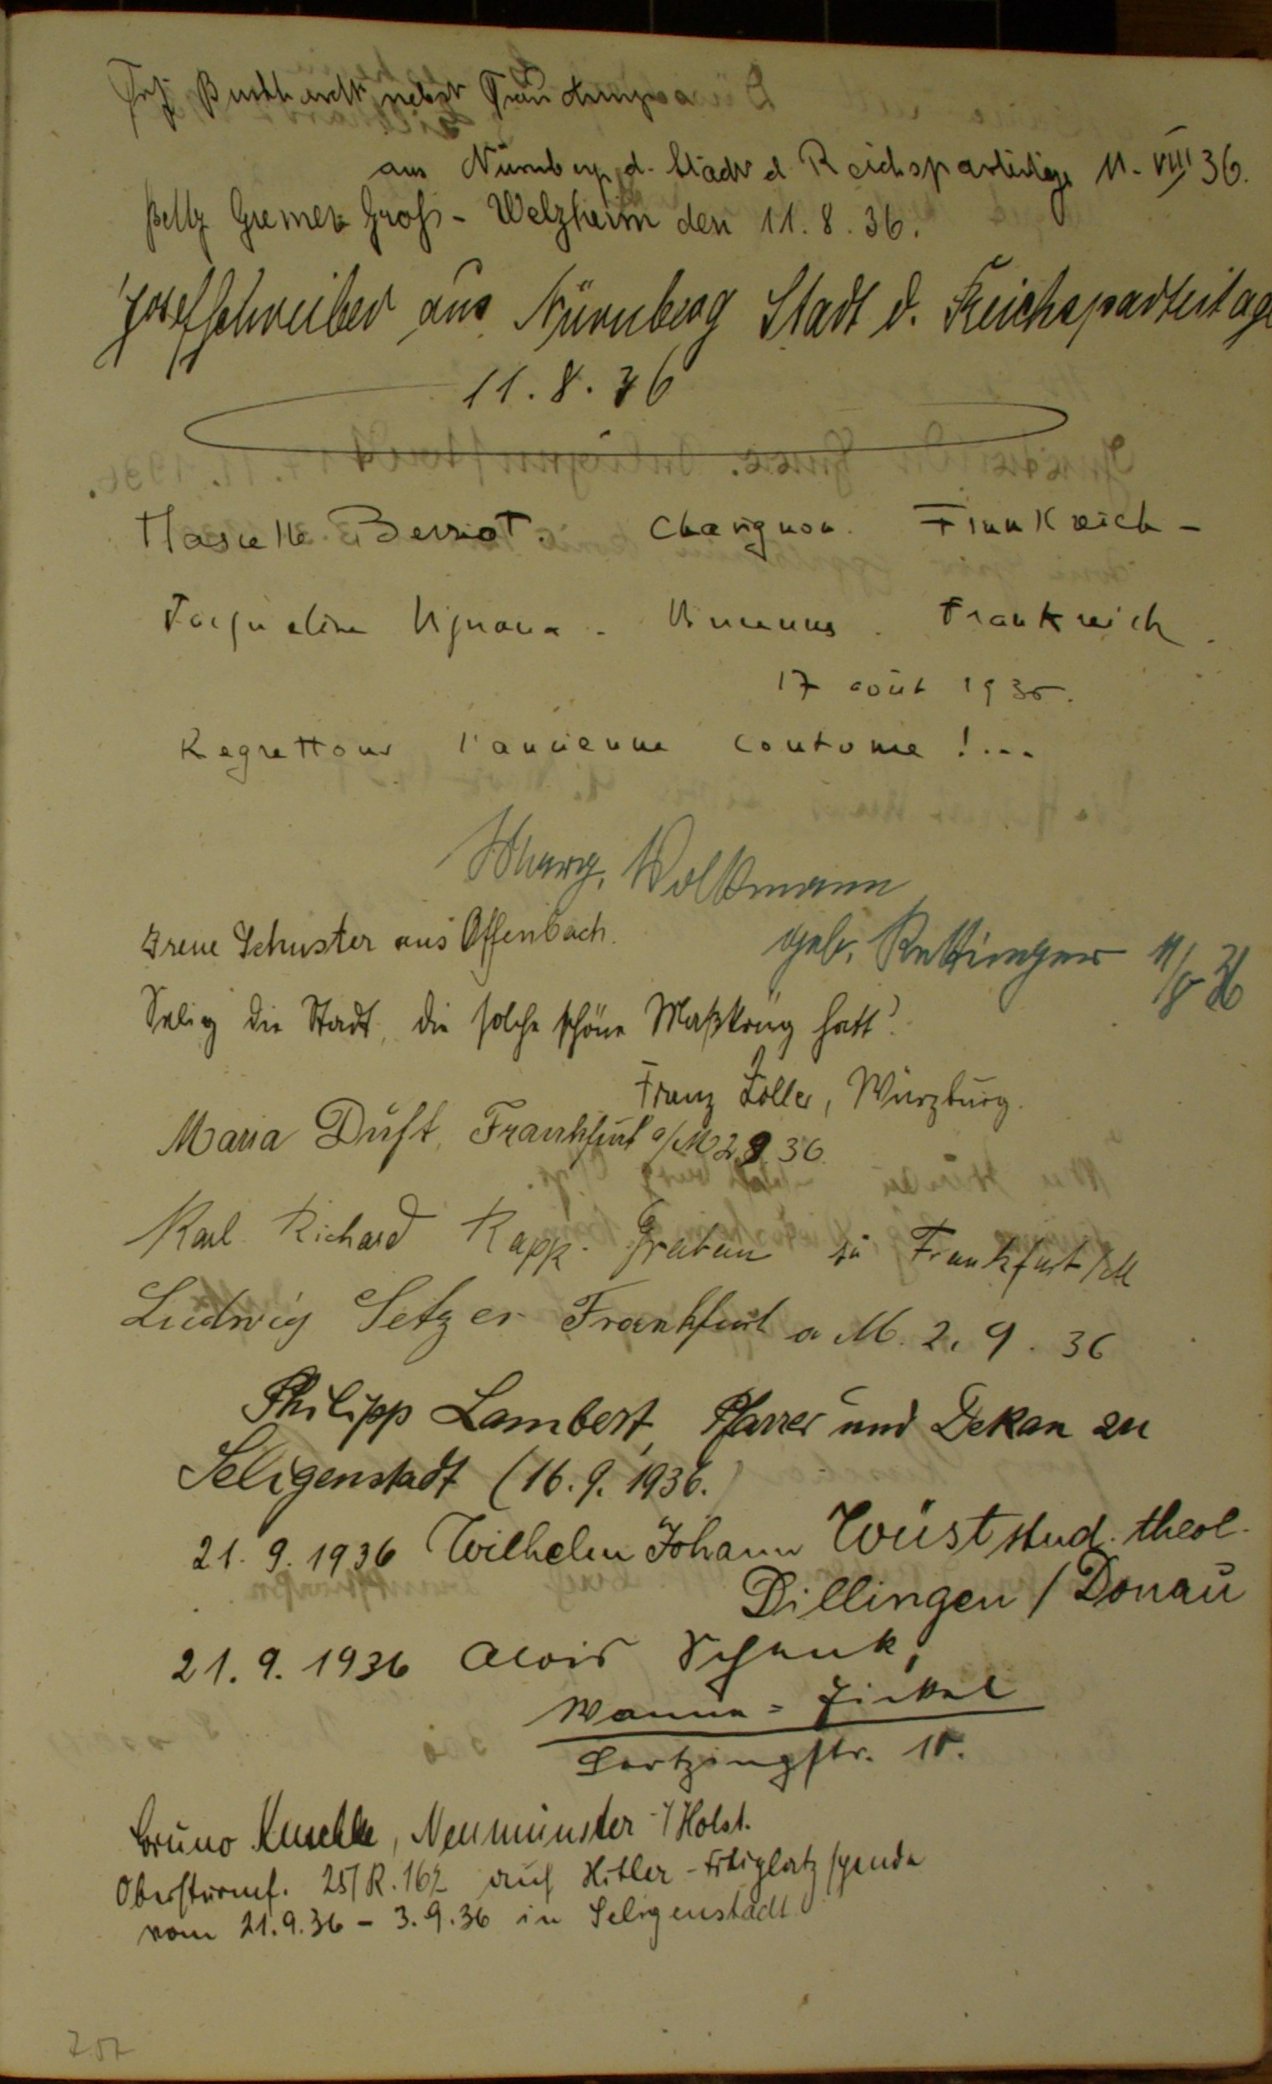 Burkhardt nebst Frau
aus Nürnberg d. Stadt d. Reichsparteitage 11. VIII 36.
Betty Gross-Welzheim den 11. 8. 36.
Josef Schreiber aus Nürnberg Stadt d. Reichsparteitage
11. 8. 36
Berriot. Charignon. Frankreich -
Jacqueline . Frankreich.
17 août 1936.
Regrettons l'ancienne coutume !...
Marg. Volkmann
geb. Rettinger 11/8 36
Irene Schuster aus Offenbach.
Selig die Stadt, die solche schöne Maßkrüg hatt!
Franz Zoller, Würzburg.
Maria Duft, Frankfurt a/M 2.9 36.
Karl Richard Rapp. Graben zu Frankfurt /M
Ludwig Setzer Frankfurt a M. 2. 9. 36
Philipp Lambert, Pfarrer und Dekan zu
Seligenstadt (16. 9. 1936.
21. 9. 1936 Wilhelm Johann Wüst stud. theol.
Dillingen / Donau
21. 9. 1936 Alois Schenk,
Wanne-Eickel
Lortzingstr. 10.
Bruno , Neumünster i/Holst.
Obersturmf. 25/R. 162 auf Hitler-Freiplatzspende
vom 21.9.36 - 3.9.36 in Seligenstadt
257